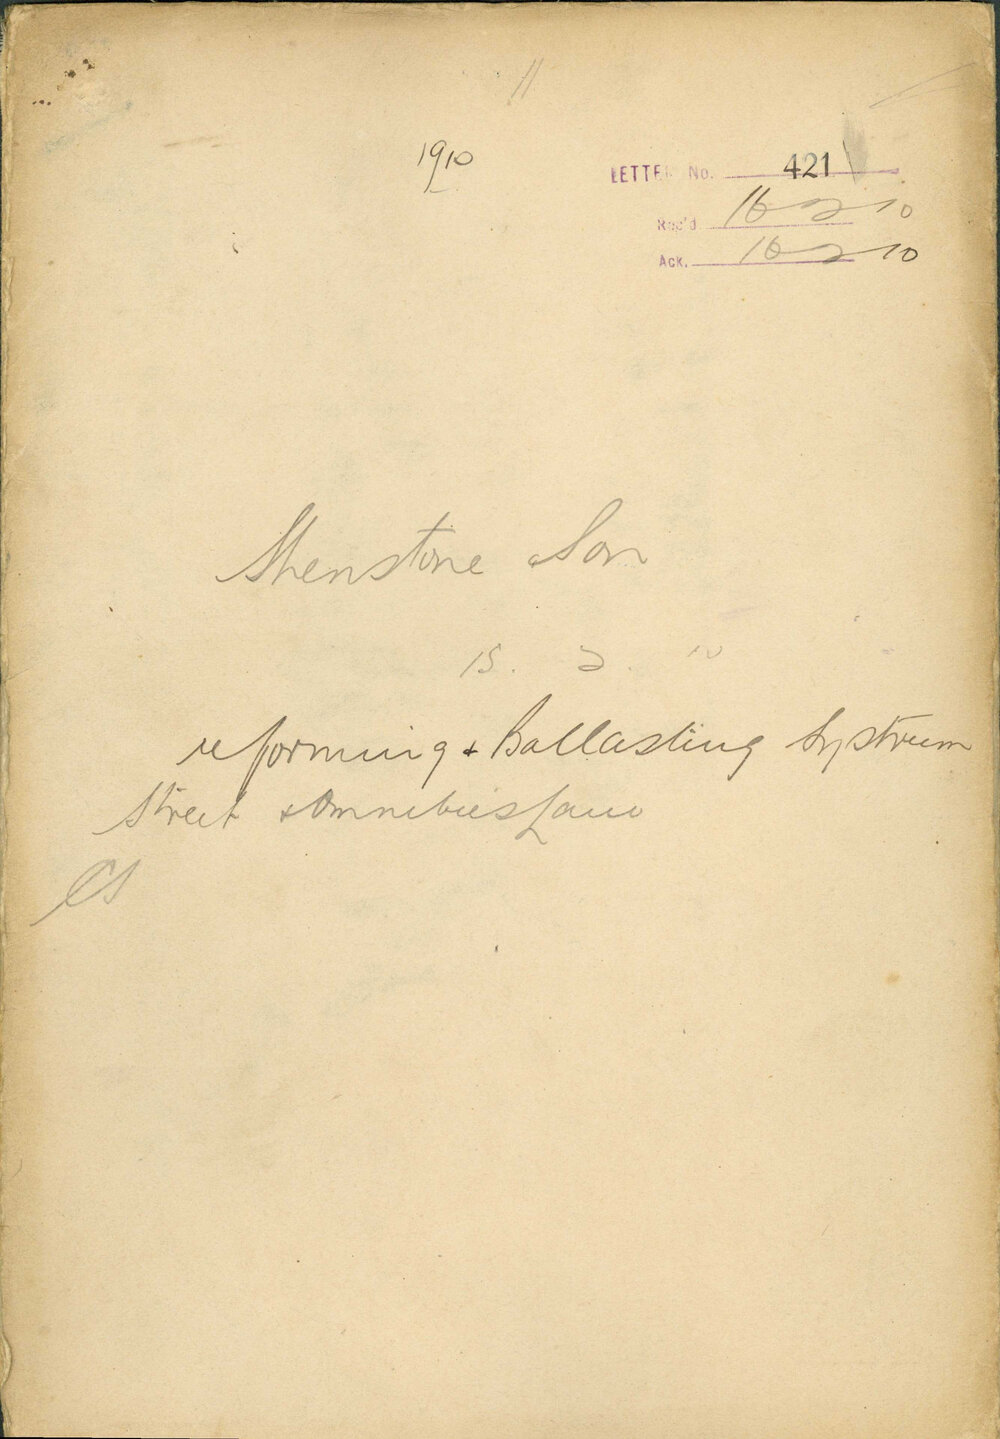 11
1910
LETTER No. 421
Rec'd 16 2 10
Ack. 16 2 10
Shenstone & Son
15. 2. 10
reforming & Ballasting Systrum
Street & Omnibus Lane
CS